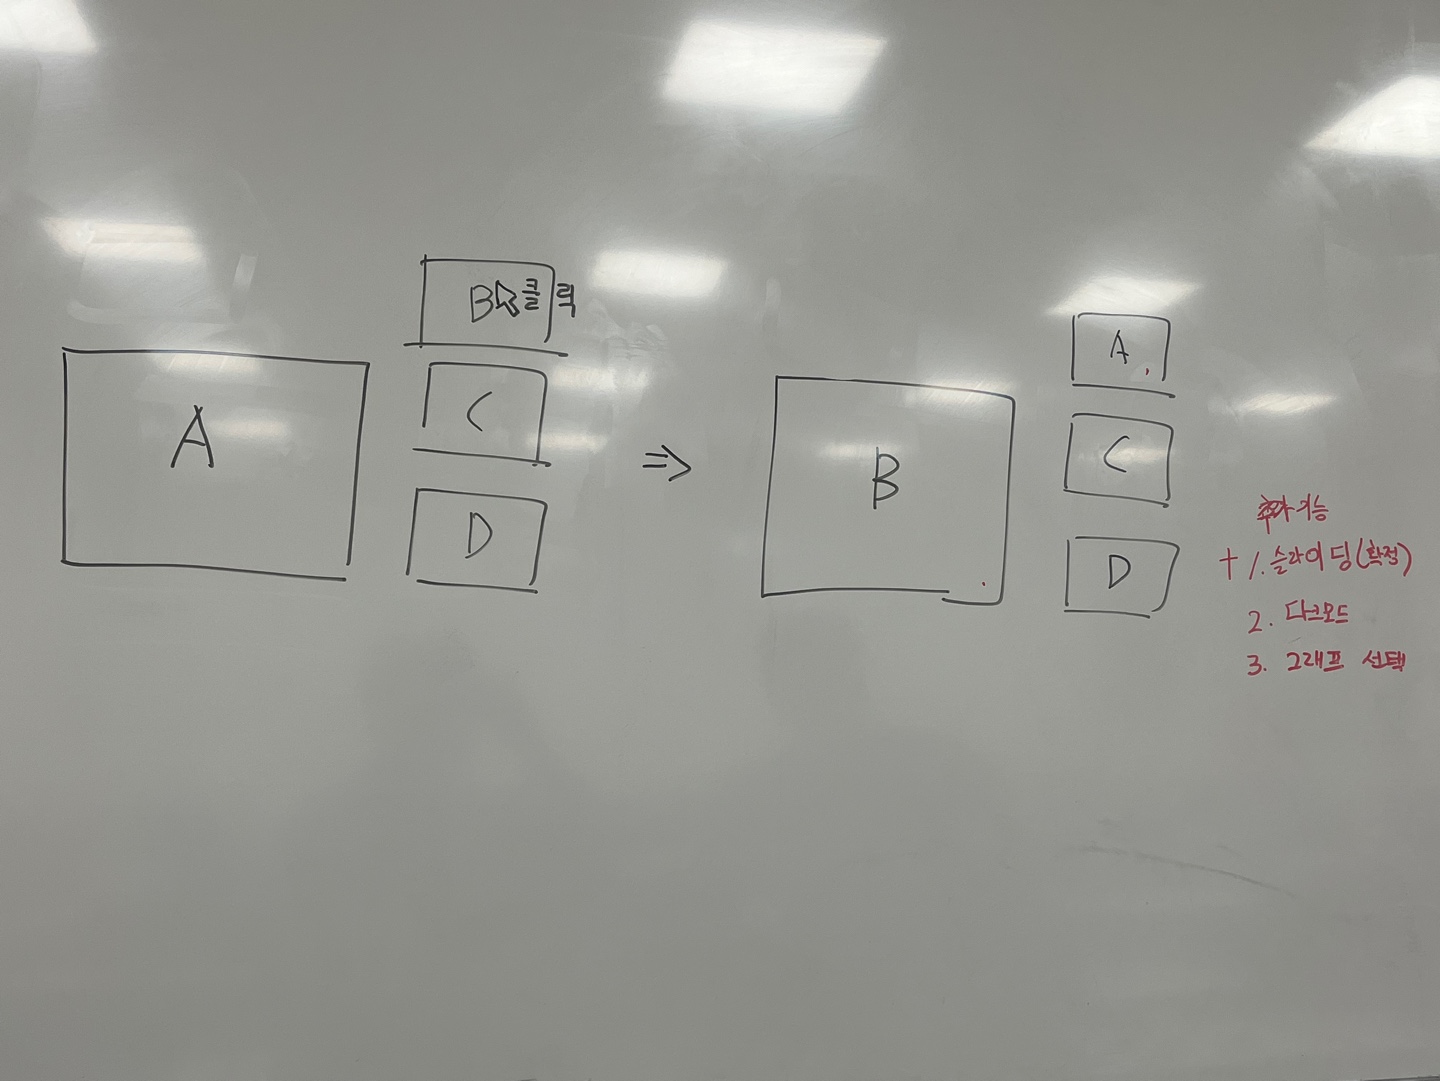 A
B 클릭
C
D
⇒
B
A
C
D
추가기능
+ 1. 슬라이딩(확정)
2. 다크모드
3. 그래프 선택